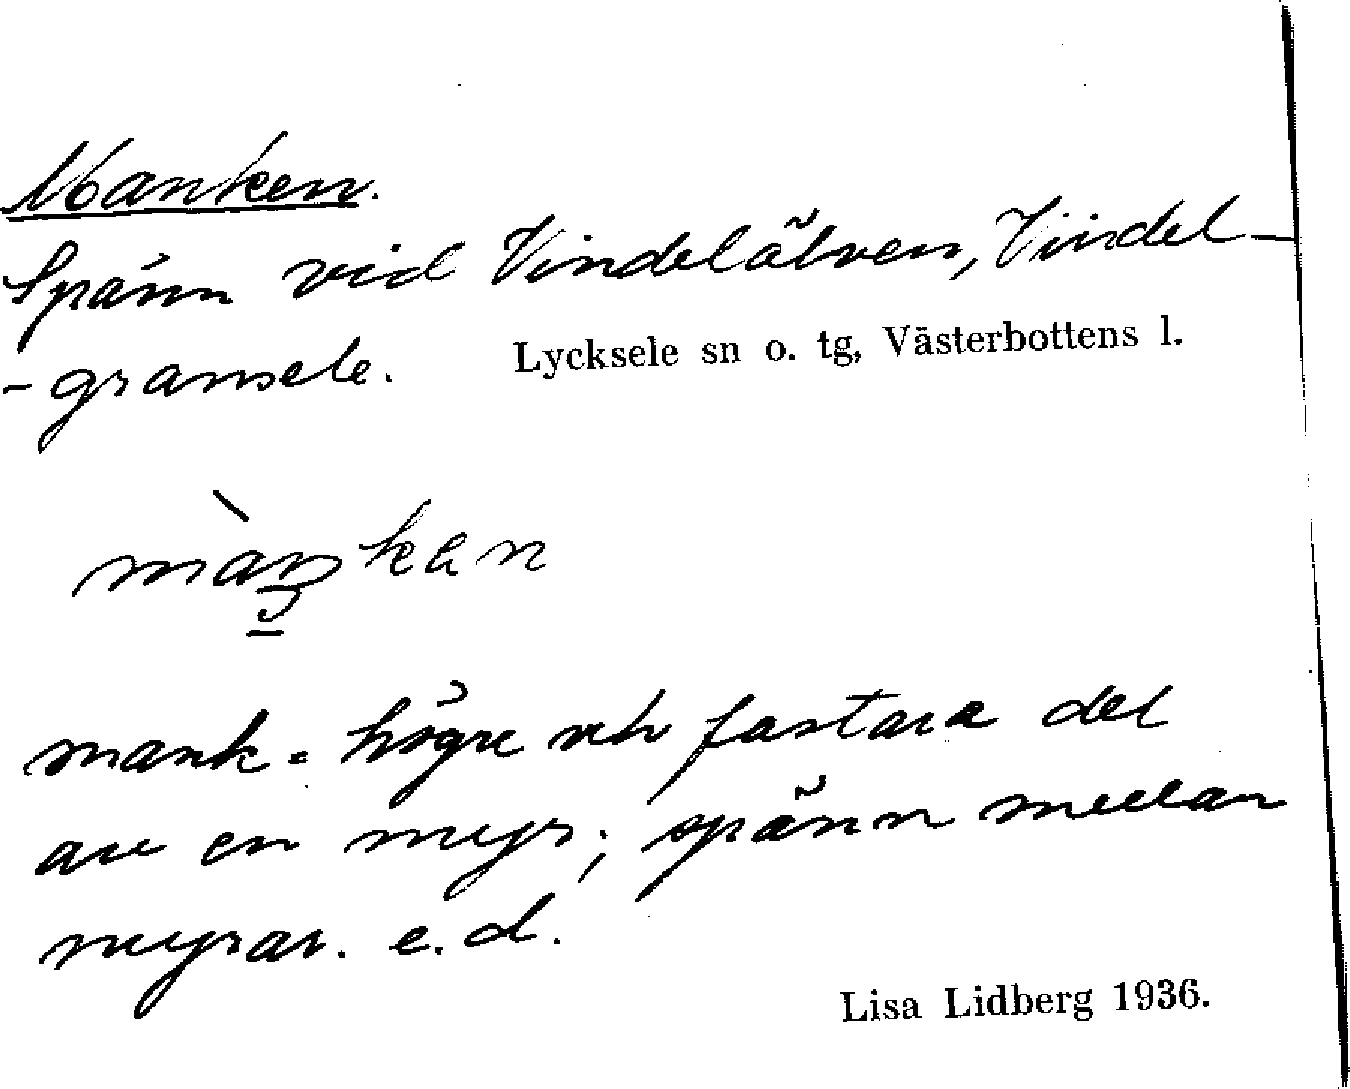 Manken.
Spänn vid Vindelälven, Vindel-
-gransele. Lycksele sn o. tg, Västerbottens l.
màŋkən
mank = högre och fastare del
av en myr; spänn mellan
myrar. e.d.
Lisa Lidberg 1936.